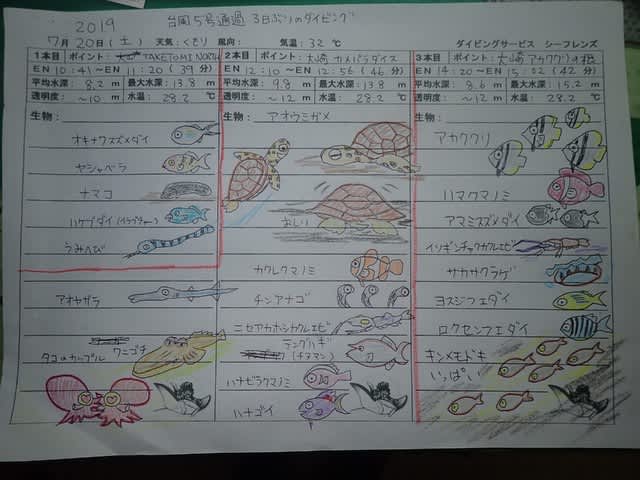 2019
台風5号通過 3日ぶりのダイビング
7月20日(土) 天気:くもり 風向: 気温:32℃ ダイビングサービス シーフレンズ
1本目 ポイント: TAKETOMI NORTH
EN 10:41~EN 11:20(39分)
平均水深:8.2 m 最大水深:13.8 m
透明度:~10 m 水温:28.2℃
生物:
オキナワスズメダイ
ヤシャベラ
ナマコ
ハゲブダイ(イラプチャー)
うみへび
アオヤガラ
ワニゴチ
タコのカップル
2本目 ポイント:大崎 カメパラダイス
EN 12:10~EN 12:56(46分)
平均水深:9.8 m 最大水深:13.8 m
透明度:~12 m 水温:28.2℃
生物: アオウミガメ
おしり
カクレクマノミ
チンアナゴ
ニセアカホシカクレエビ
テングハギ
(チヌマン)
ハナビラクマノミ
ハナゴイ
3本目 ポイント:大崎 アカククリの根
EN 14:20~EN 15:02(42分)
平均水深:8.6 m 最大水深:15.2 m
透明度:~12 m 水温:28.2℃
生物:
アカククリ
ハマクマノミ
アマミスズメダイ
イソギンチャクカクレエビ
サカサクラゲ
ヨスジフエダイ
ロクセンフエダイ
キンメモドキ
いっぱい